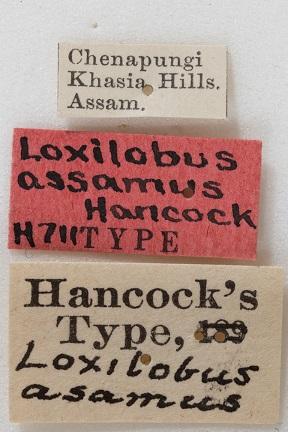 Chenapungi
Khasia Hills.
Assam.
Loxilobus
assamus
Hancock
H711 TYPE
Hancock's
Type, 189
Loxilobus
asamus